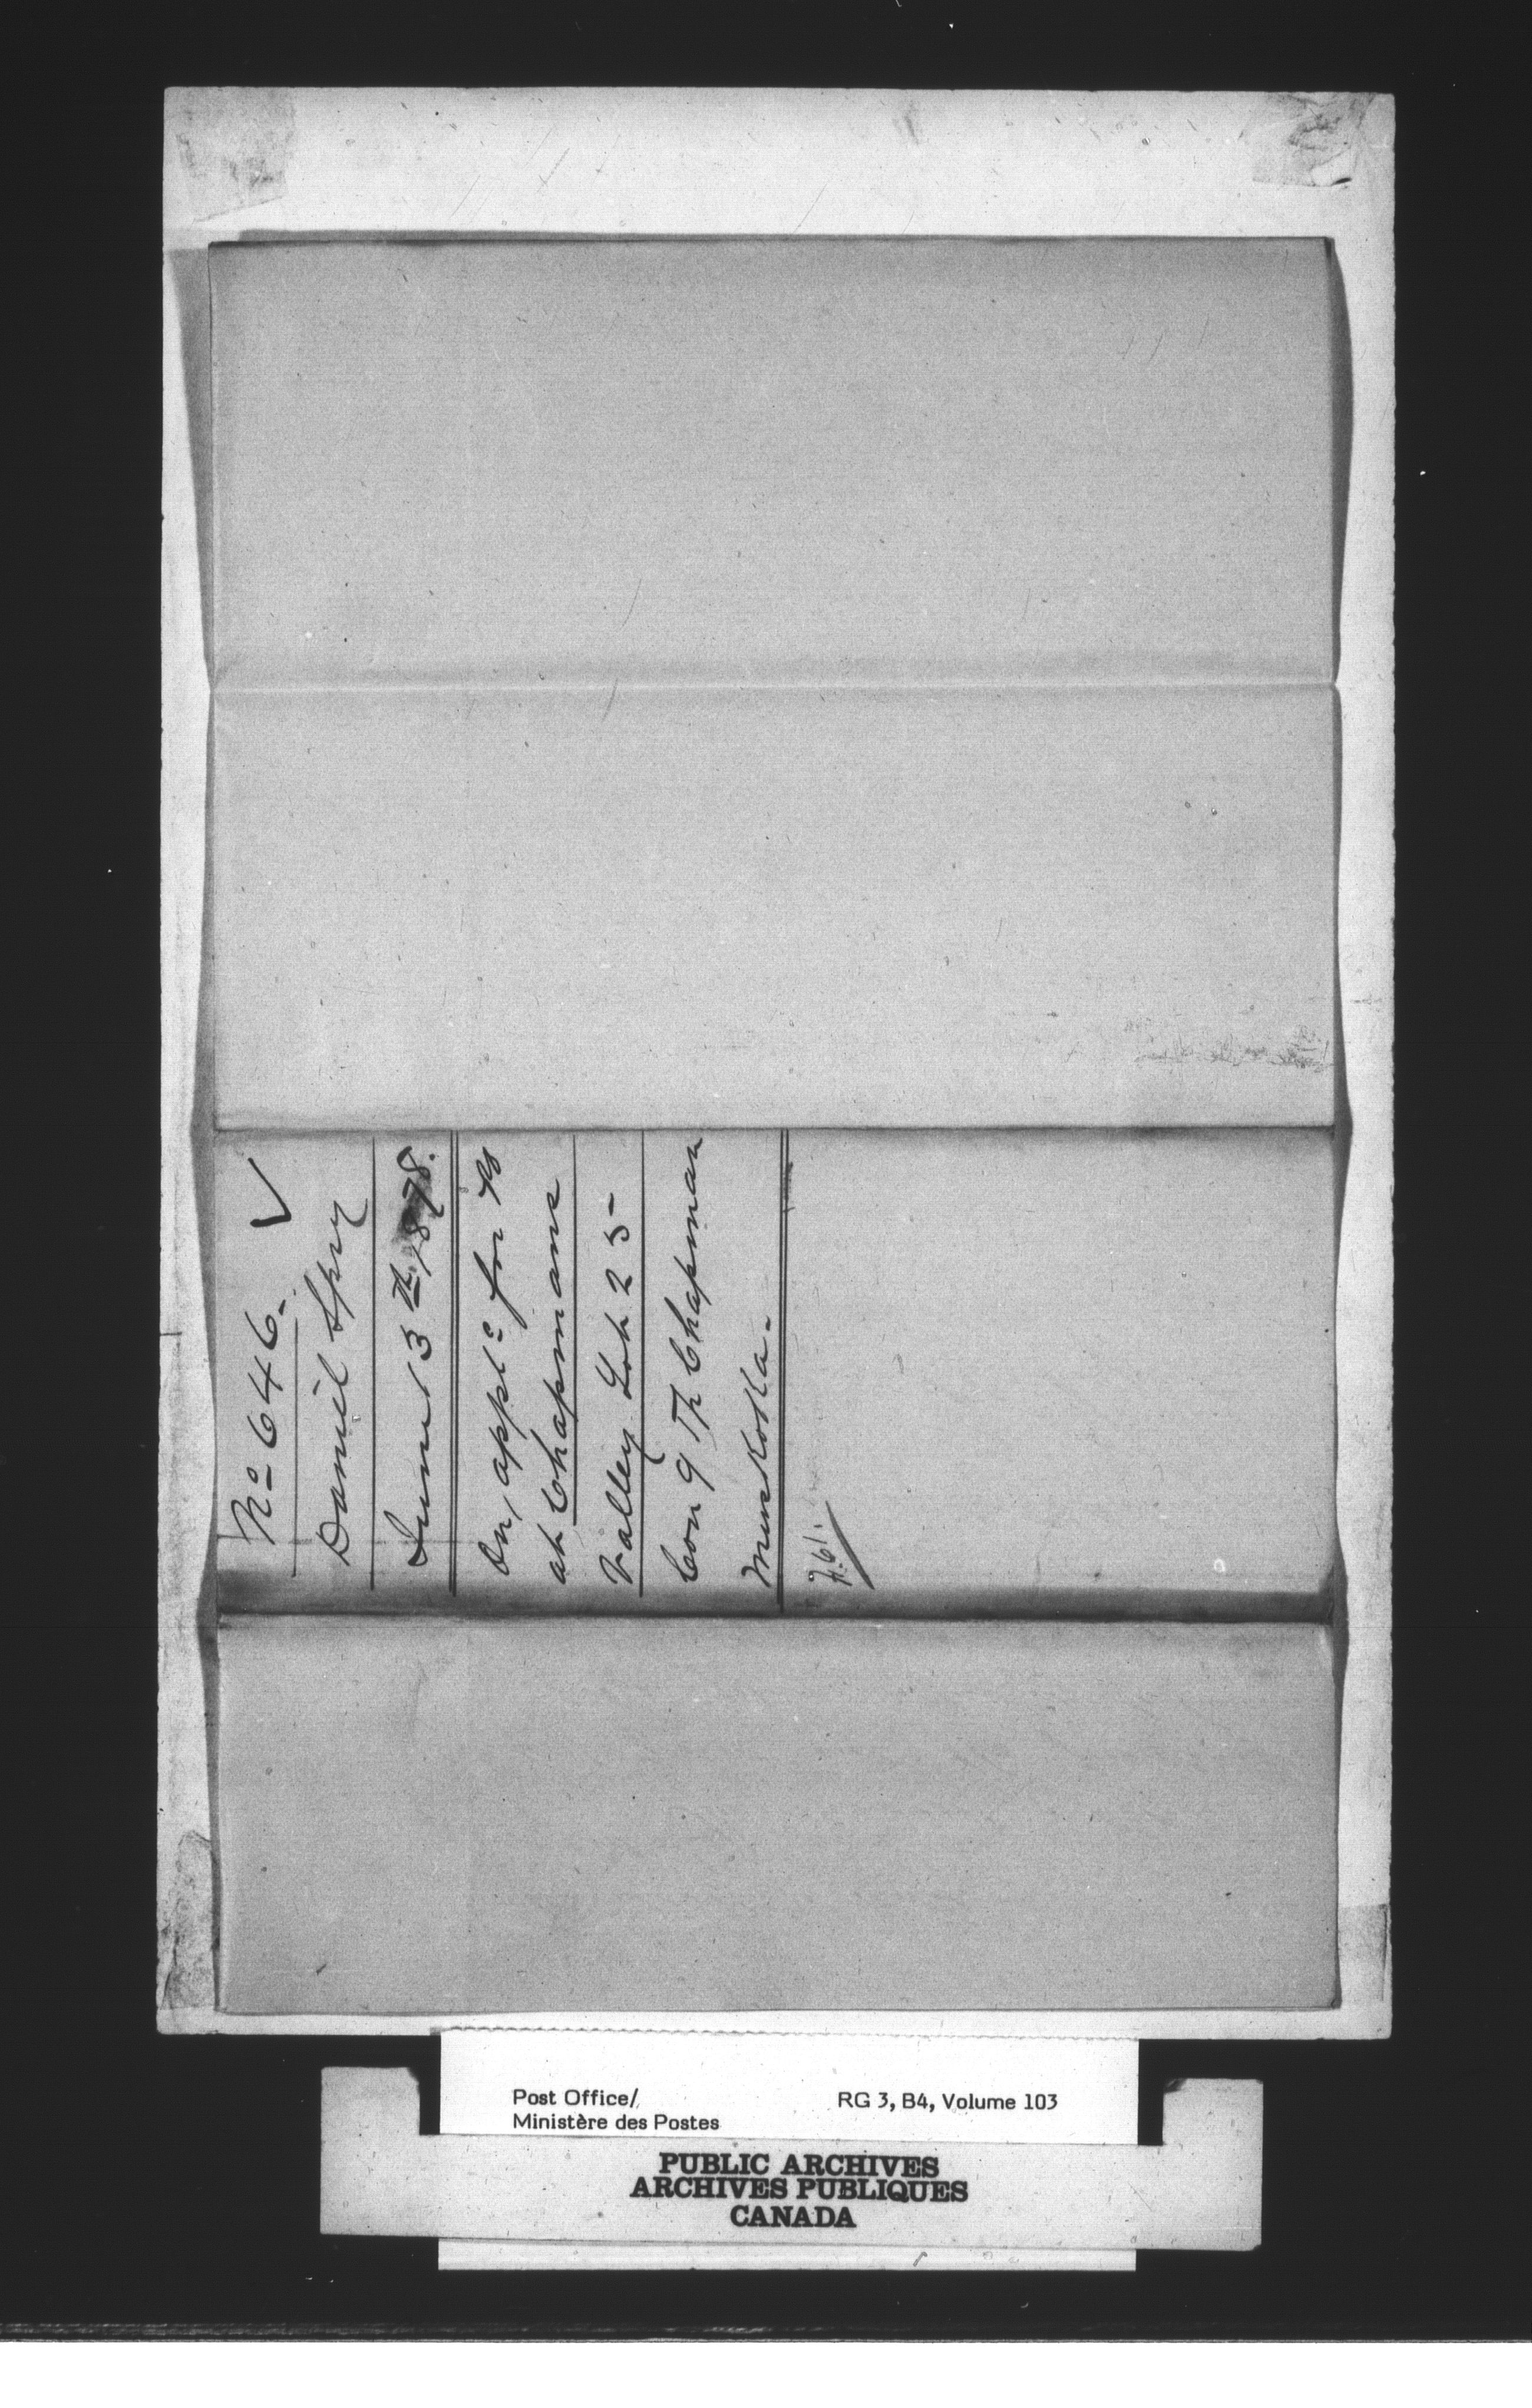 No 646. V
Daniel Spry
June 13th 1878.
On applc for PO
at Chapmans
Valley Lot 25
Con 9 Tp Chapman
Muskoka.
Post Office/
Ministère des Postes
RG 3, B4, Volume 103
PUBLIC ARCHIVES
ARCHIVES PUBLIQUES
CANADA